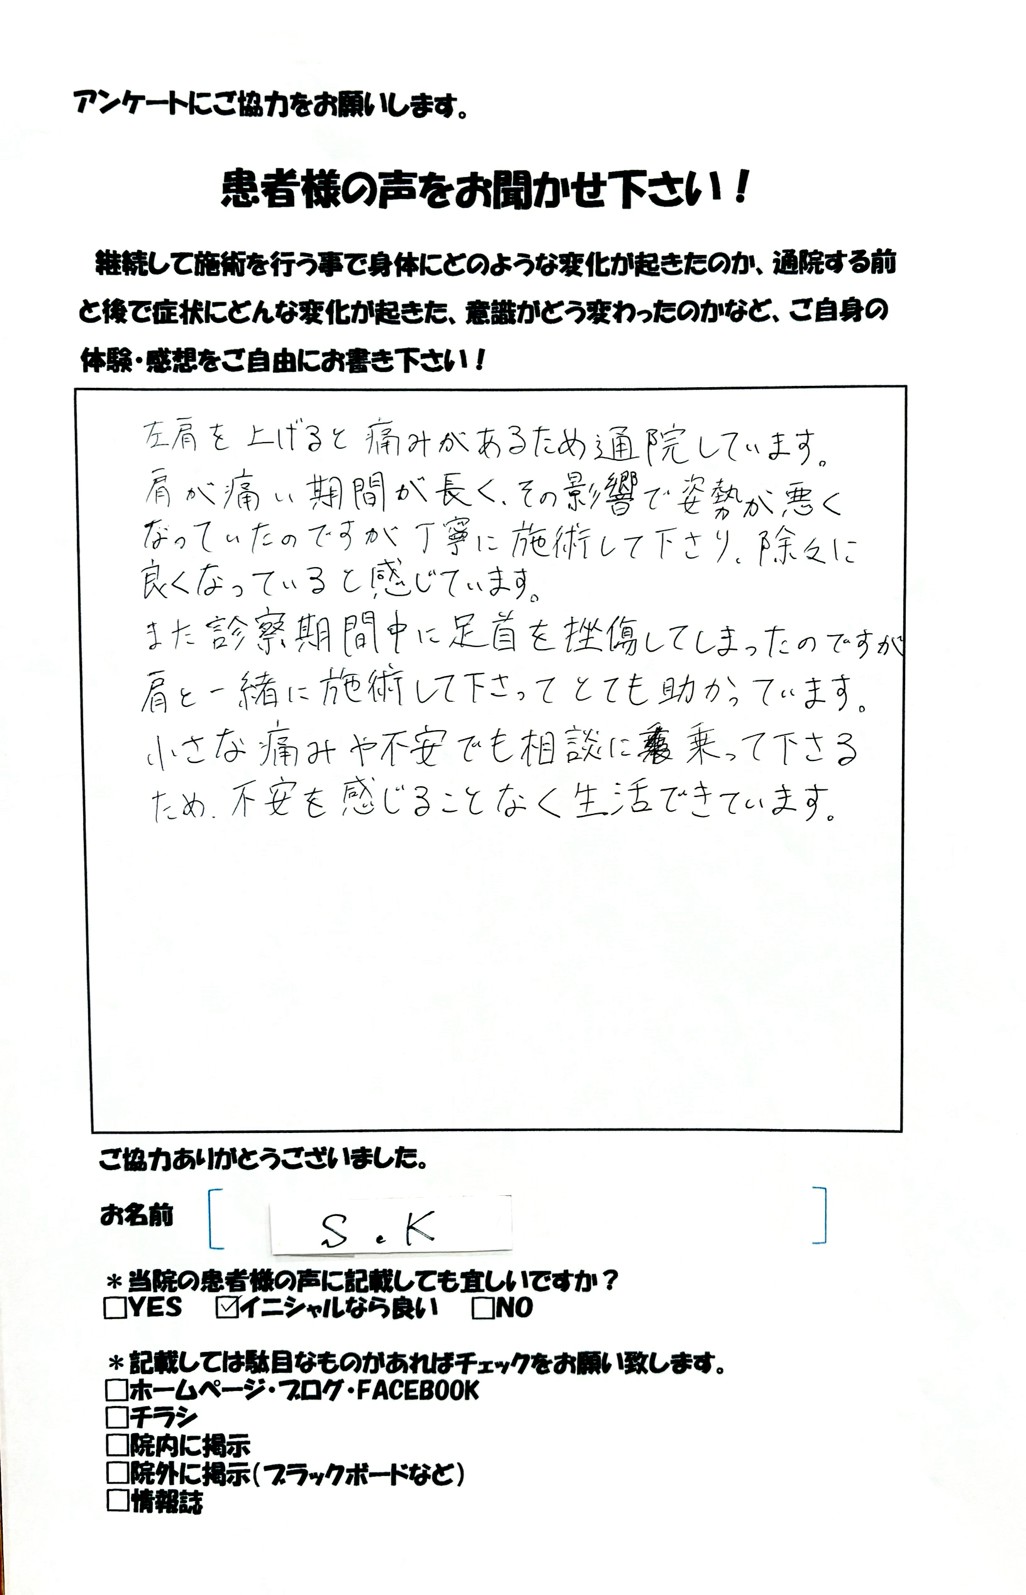 アンケートにご協力をお願いします。
患者様の声をお聞かせ下さい！
継続して施術を行う事で身体にどのような変化が起きたのか、通院する前
と後で症状にどんな変化が起きた、意識がどう変わったのかなど、ご自身の
体験・感想をご自由にお書き下さい！
左肩を上げると痛みがあるため通院しています。
肩が痛い期間が長く、その影響で姿勢が悪く
なっていたのですが丁寧に施術して下さり、除々に
良くなっていると感じています。
また診察期間中に足首を挫傷してしまったのですが
肩と一緒に施術して下さってとても助かっています。
小さな痛みや不安でも相談に乗って下さる
ため、不安を感じることなく生活できています。
ご協力ありがとうございました。
お名前 [ S.K ]
＊当院の患者様の声に記載しても宜しいですか？
□YES ☑イニシャルなら良い □NO
＊記載しては駄目なものがあればチェックをお願い致します。
□ホームページ・ブログ・FACEBOOK
□チラシ
□院内に掲示
□院外に掲示（ブラックボードなど）
□情報誌